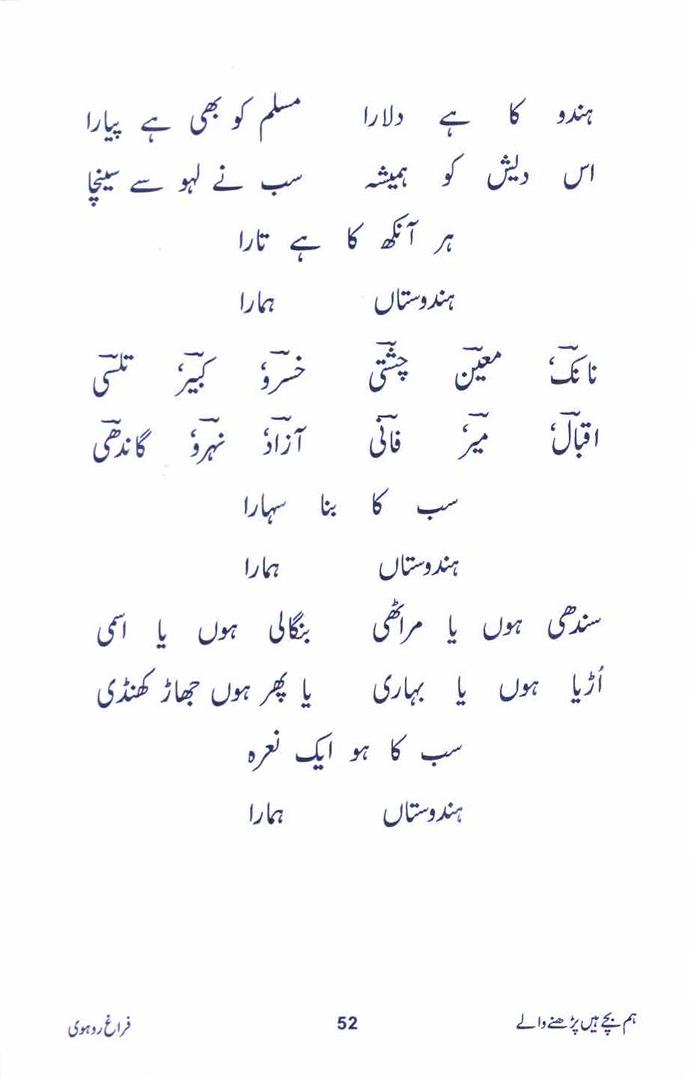 ہندو کا ہے دلارا مسلم کو بھی ہے پیارا
اس دیش کو ہمیشہ سب نے لہو سے سینچا
ہر آنکھ کا ہے تارا
ہندوستاں ہمارا
نانکؔ، معینؔ چشتیؔ خسروؔ، کبیرؔ، تلسیؔ
اقبالؔ، میرؔ، فانیؔ آزادؔ، نہروؔ، گاندھیؔ
سب کا بنا سہارا
ہندوستاں ہمارا
سندھی ہوں یا مراٹھی بنگالی ہوں یا اسمی
اُڑیا ہوں یا بہاری یا پھر ہوں جھاڑ کھنڈی
سب کا ہو ایک نعرہ
ہندوستاں ہمارا
ہم بچے ہیں پڑھنے والے 52 فراغ روہوی